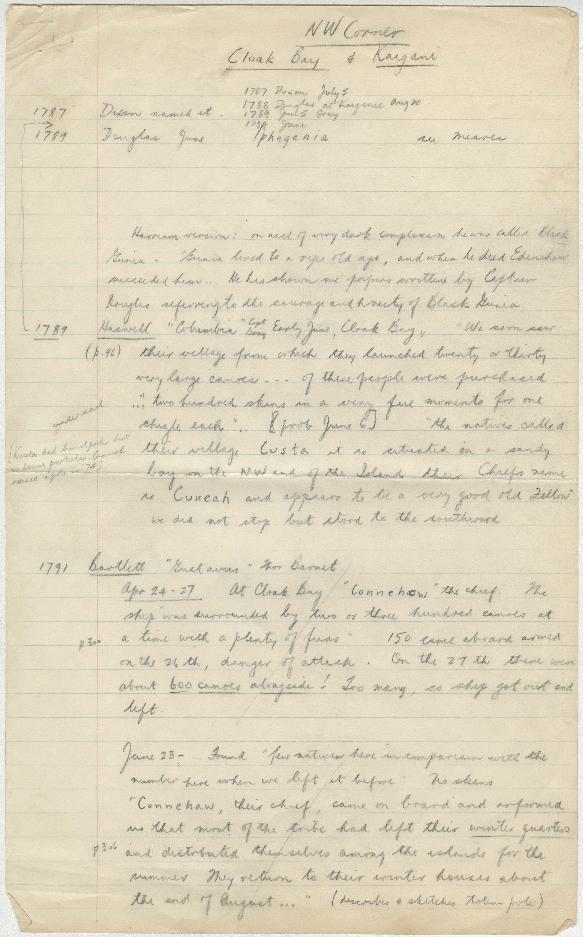 NW Corner
Cloak Bay & Kaigani
1787 Dixon July 5
1788 Douglas at Kaigani Aug 20
1789 June Gray
1789 June
1787 Dixon named it.
1789 Douglas June Iphegenia see Meares
Harrison version: on acct of very dark complexion he was called Black
Gunia - "Gunia lived to a ripe old age, and when he died Edenshaw
succeeded him.. He has shown me papers written by Captain
Douglas referring to the courage and honesty of Black Gunia.
1789 Haswell "Columbia" Capt Gray Early June, Cloak Bay, "We soon saw
(p.96) their village from which they launched twenty or thirty
very large canoes --- of these people were purchased
..: two hundred skins in a very few moments for one
chisle each".. [prob June 6] "the natives called
their village Custa it is situated on a sandy
bay on the NW end of the Island their Chiefs name
is Cuneah and appears to be a very good old Fellow"
we did not stop but stood to the southward
under sail
1791 Bartlett "Gustavus" Thos Barnet.
Apr 24-27 At Cloak Bay "Connehaw" the chief. The
ship was surrounded by two or three hundred canoes at
p300 a time with a plenty of furs" 150 came aboard armed
on the 26th, danger of attack. On the 27th there were
about 600 canoes alongside! Too many, so ship got out and
left.
June 23- Found "few natives here in comparison with the
number here when we left it before" No skins
"Connehaw, their chief, came on board and informed
us that most of the tribe had left their winter quarters
p306 and distributed themselves among the islands for the
summer They return to their winter houses about
the end of August..." (describes & sketches totem pole)